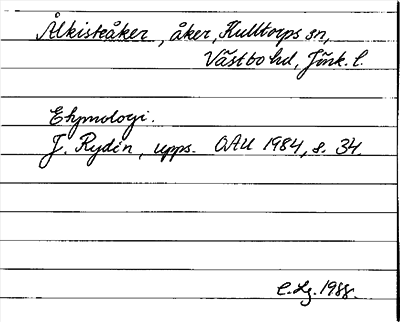 Ålkisteåker, åker, Hulltorps sn,
Västbo hd, Jönk. l.
Etymologi.
J. Rydén, upps. OAU 1984, s. 34.
C. Lg. 1988.